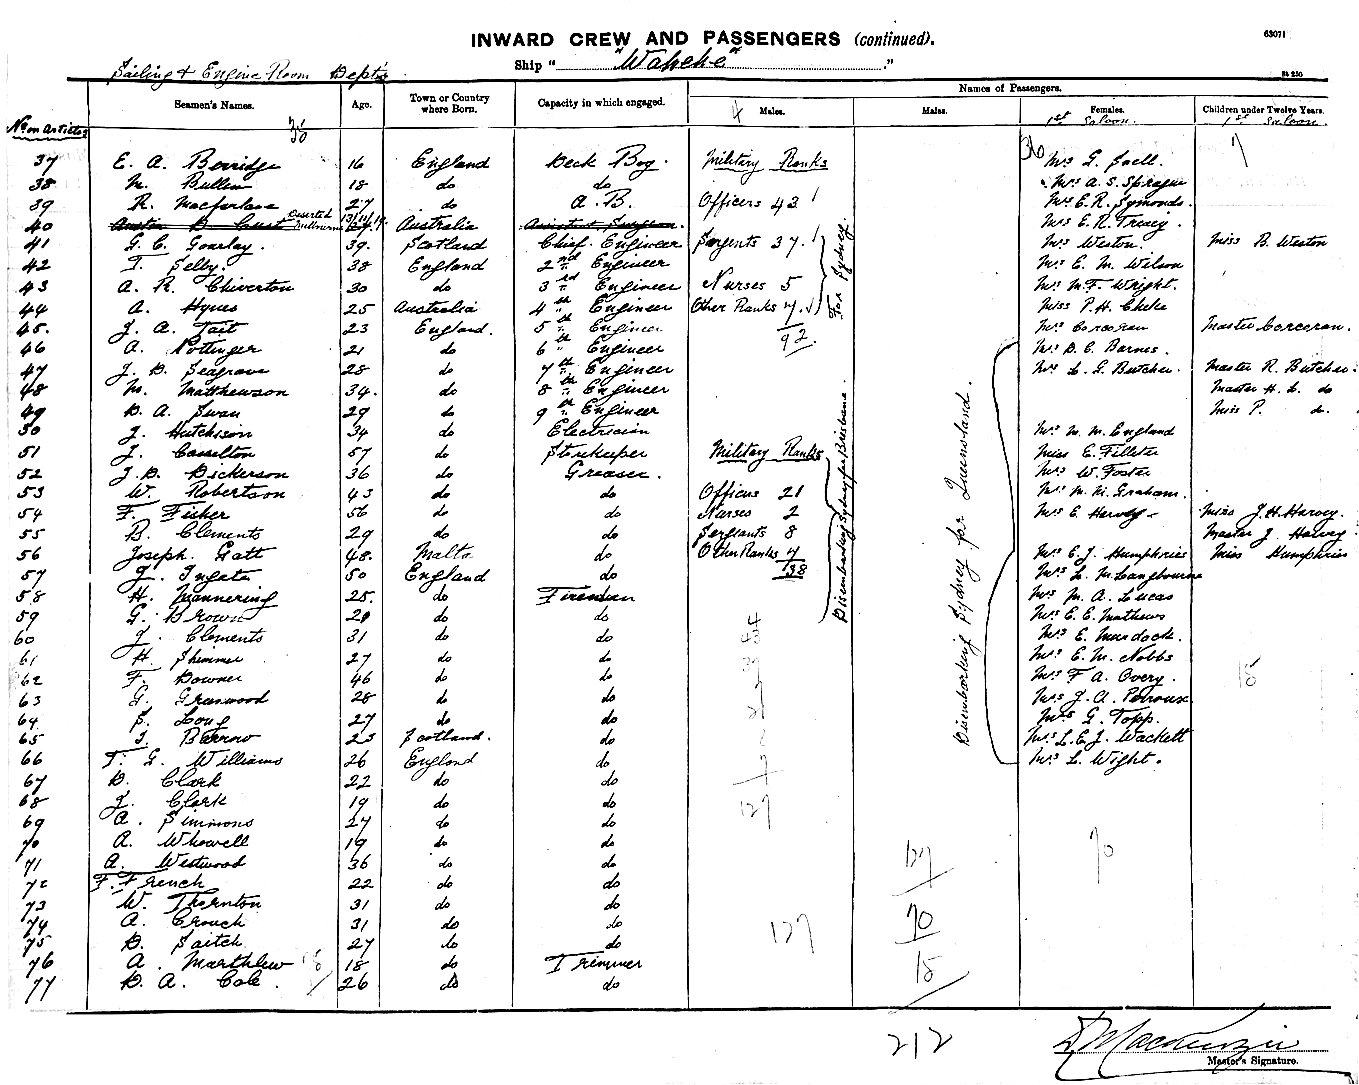 INWARD CREW AND PASSENGERS (continued).
63071
Ship "Wahehe"
Sailing & Engine Room Dept's
84 250
Names of Passengers.
Seamen's Names. Age. Town or Country where Born. Capacity in which engaged. Males. Males. Females. Children under Twelve Years.
4 1st Saloon. 1st Saloon.
No on Articles
36 7
37 E. A. Berridge 16 England Deck Boy. Military Ranks Mrs G. Snell.
38 M. Bullen 18 do do Mrs A. S. Sprague
39 R. Macfarlane 27 do A. B. Officers 43 Mrs E. R. Symonds
40 Austin D. Cust Deserted Melbourne Australia Assistant Surgeon Mrs E. R. Treeig.
41 G. C. Gourlay. 39. Scotland Chief Engineer Sergents 37. Mrs Weston. Miss B. Weston
42 T. Selby. 38 England 2nd Engineer Mrs E. M. Wilson
43 A. R. Chiverton 30 do 3rd Engineer Nurses 5 Mrs M. F. Wright.
44 A. Hynes 25 Australia 4th Engineer Other Ranks 7. Miss P. H. Cheke
For Sydney
45. J. A. Tait 23 England. 5th Engineer 92. Mrs Corcoran Master Corcoran.
46 A. Pottinger 21 do 6th Engineer Mrs D. C. Barnes.
47 J. D. Seagrave 28 do 7th Engineer Mrs L. G. Butcher. Master R. Butcher
48 M. Matthewson 34. do 8th Engineer Master H. L. do
49 D. A. Swan 29 do 9th Engineer Miss P. do.
50 J. Hutchison 34 do Electrician Mrs M. M. England
51 J. Casselton 57 do Storekeeper Military Ranks Miss E. Fillster
52 J. D. Dickerson 36 do Greaser. Mrs W. Foster
53 W. Robertson 43 do do Officers 21 Mrs M. M. Graham.
54 F. Fisher 56 do do Nurses 2 Mrs E. Hervey Miss J. H. Hervey.
55 B. Clements 29 do do Sergeants 8 Master J. Hervey.
56 Joseph Gatt 48. Malta do Other Ranks 7 Mrs E. J. Humphries Miss Humphries
57 J. Ingate 50 England do 38 Mrs L. M. Langbourne
Disembarking Sydney for Brisbane
Disembarking Sydney for Queensland.
58 H. Mannering 25. do Fireman Mrs M. A. Lucas
59 G. Brown 20 do do Mrs E. E. Mathews
60 J. Clements 31 do do Mrs E. Murdock.
61 H. Skinner 27 do do Mrs E. M. Nobbs
62 F. Downer 46 do do Mrs F. A. Overy.
63 G. Greenwood 28 do do Mrs J. A. Perroux
64 S. Long 27 do do Mrs G. Topp.
65 J. Barrow 23 Scotland. do Mrs L. E. J. Wackett
66 T. G. Williams 26 England do Mrs L. Wight.
67 D. Clark 22 do do
68 J. Clark 19 do do
69 A. Simmons 27 do do
70 A. Whowell 19 do do
71 A. Westwood 36 do do
72 F. French 22 do do
73 W. Thornton 31 do do
74 A. Crouch 31 do do
75 D. Saitch 27 do do
76 A. Marthlew 18 do Trimmer
77 D. A. Cole. 26 do do
127
70
127
70
15
212
D Mackenzie
Master's Signature.